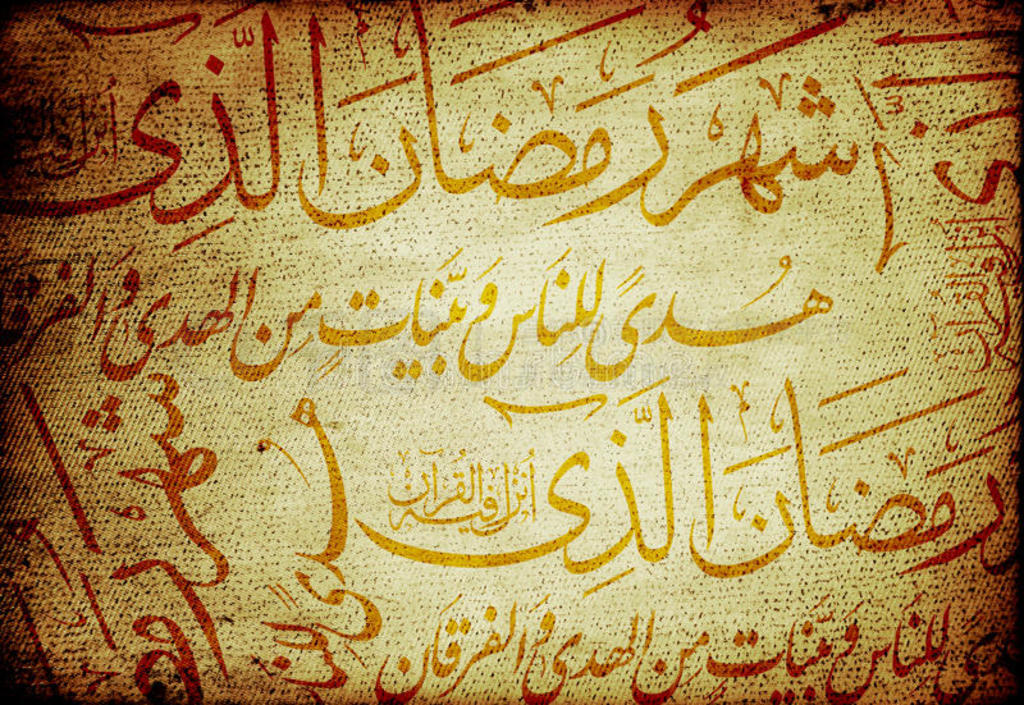 شَهرُ رَمَضَانَ الَّذِي أُنزِلَ فِيهِ القُرآن
هُدىً لِلنَاسِ وَ بَيِّنَاتٍ مِنَ الهُدى وَ الفُرقَان
رَمَضَانَ الَّذِي أُنزِلَ فِيهِ القُرآن
لِلنَاسِ وَ بَيِّنَاتٍ مِنَ الهُدى وَ الفُرقَان
شهر